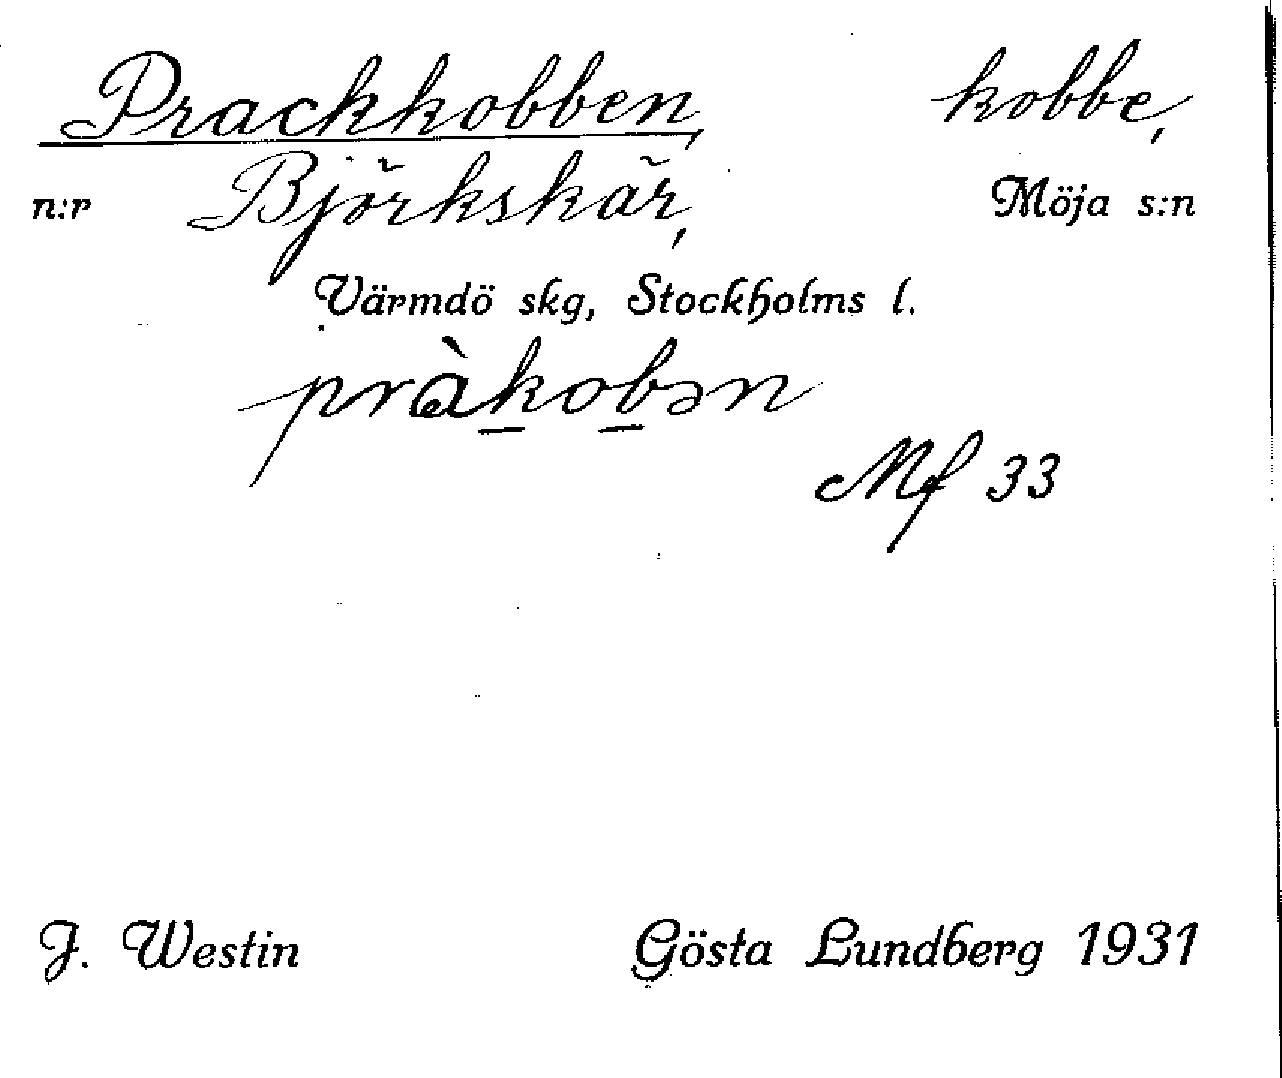 Prackkobben, kobbe,
n:r Björkskär, Möja s:n
Värmdö skg, Stockholms l.
pràk̲ob̲ən
Mf 33
J. Westin Gösta Lundberg 1931